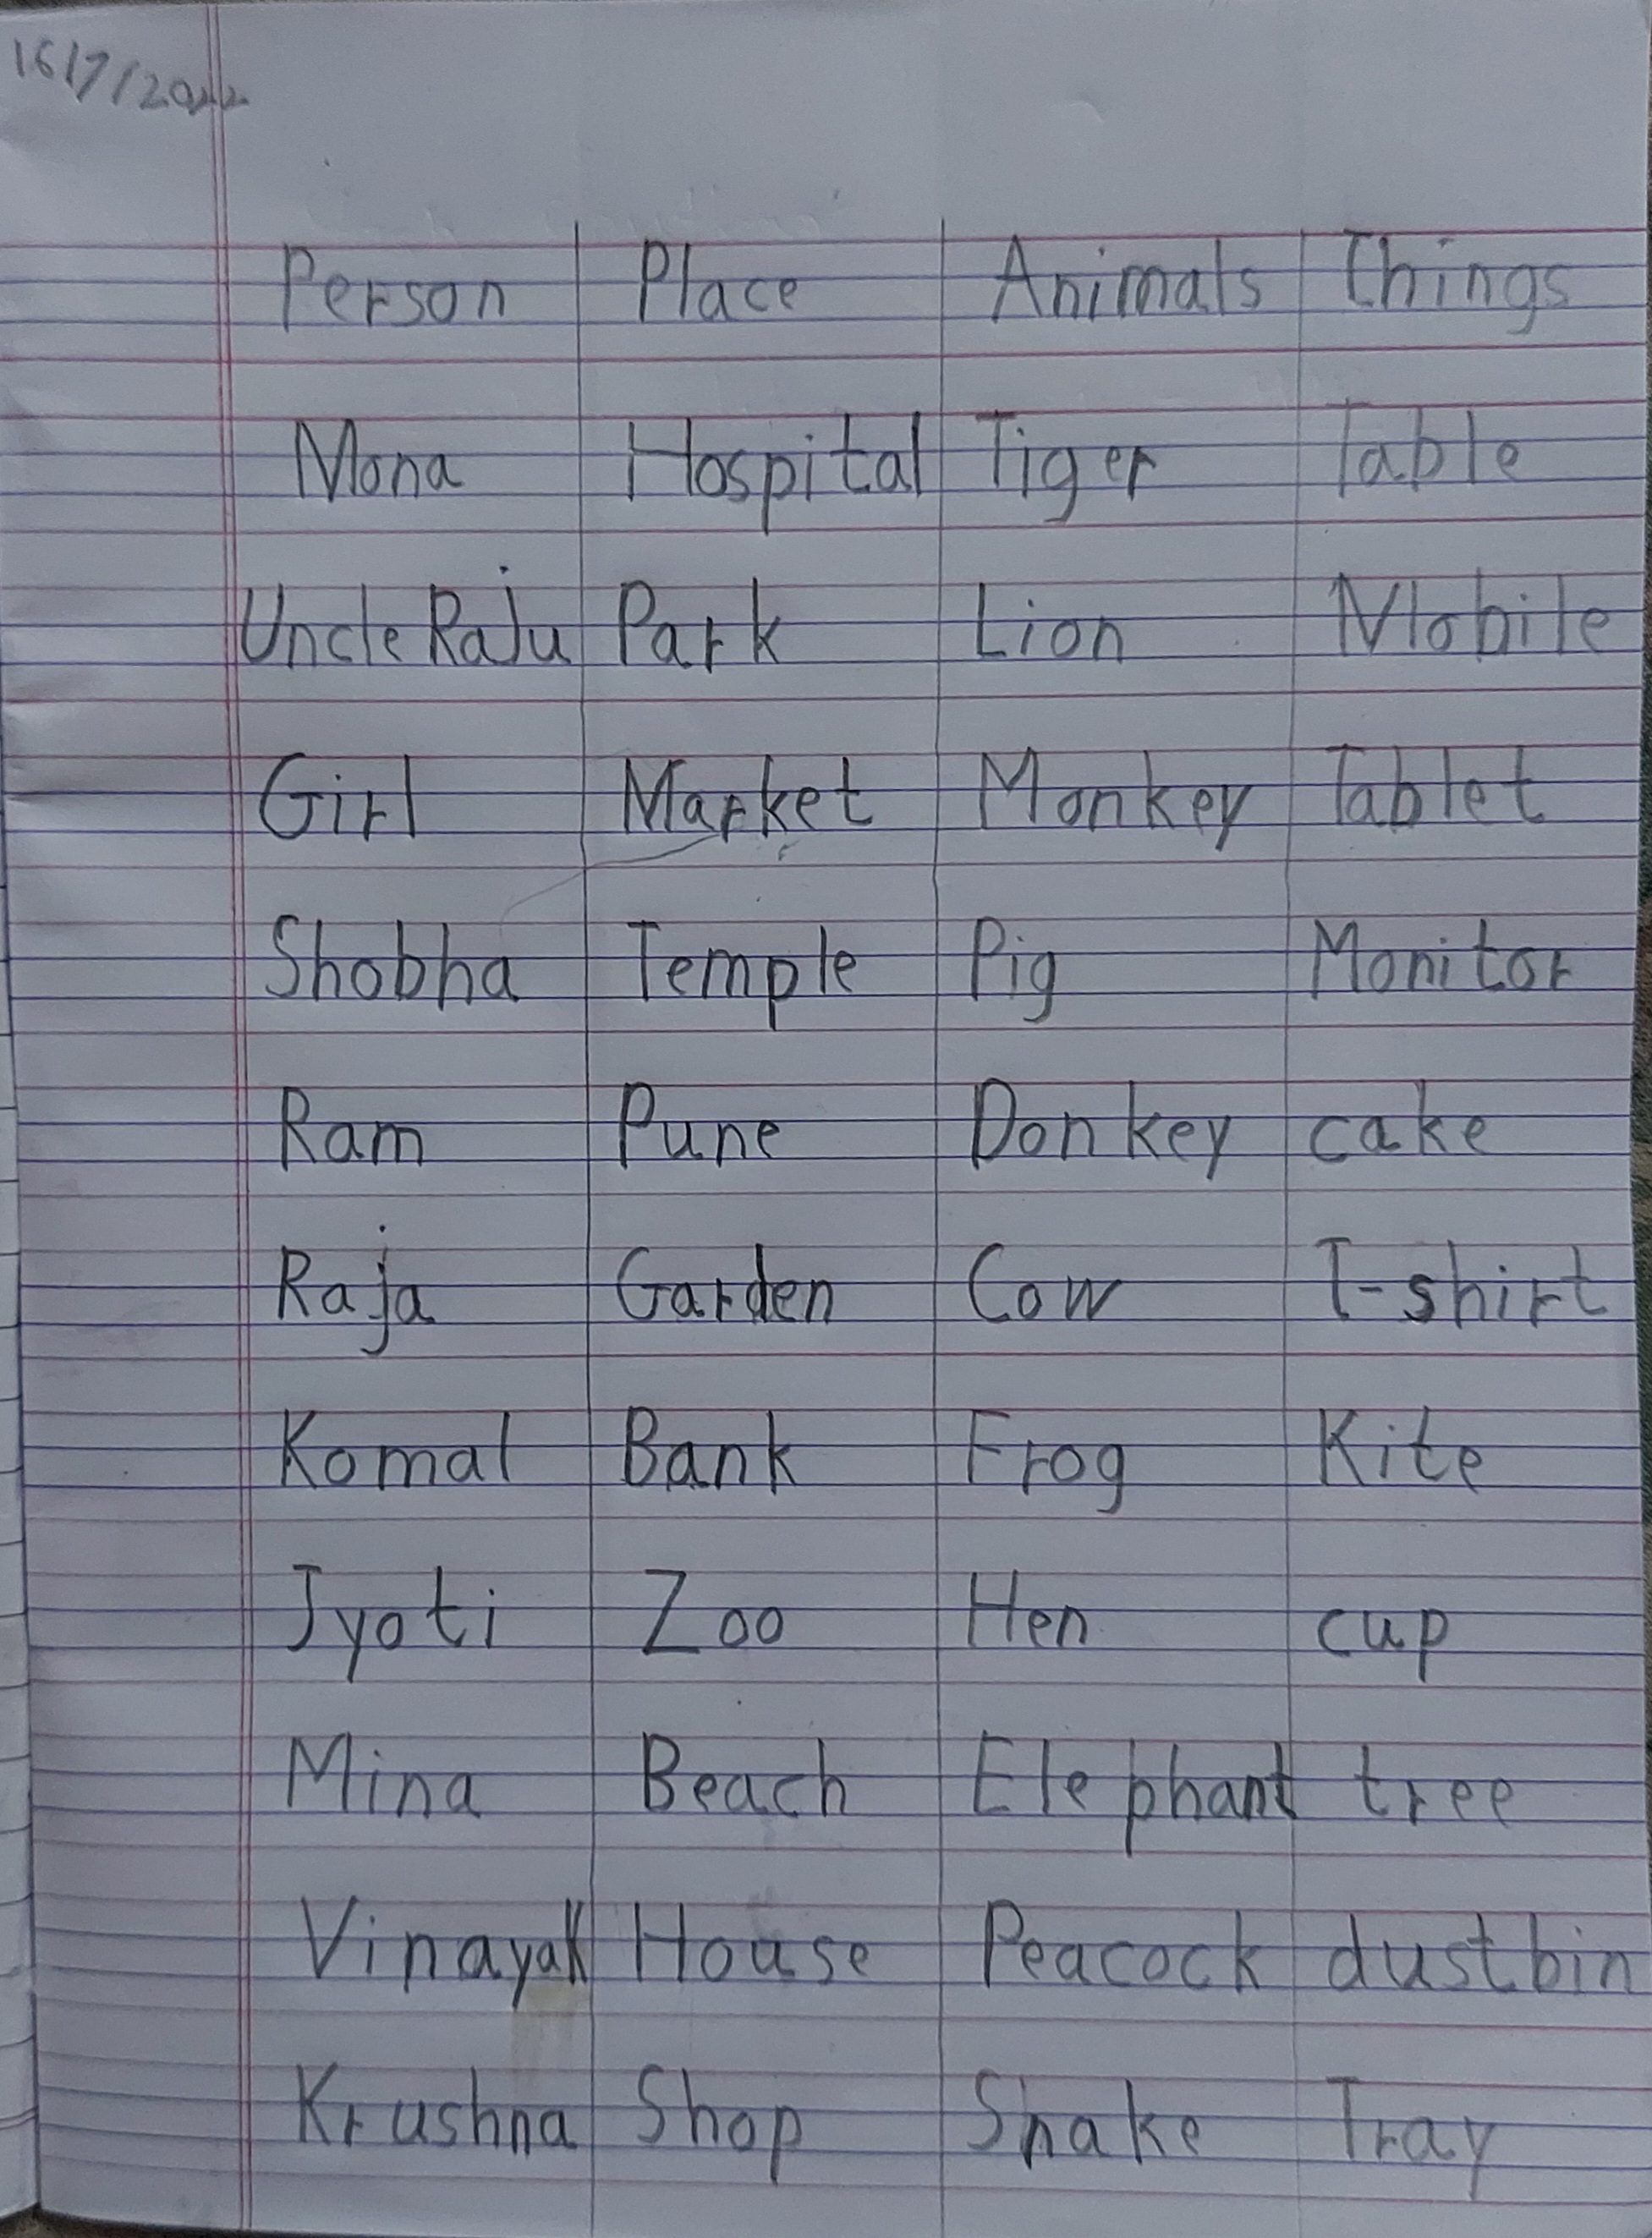 16/7/2022
Person Place Animals Things
Mona Hospital Tiger Table
Uncle Raju Park Lion Mobile
Girl Market Monkey Tablet
Shobha Temple Pig Monitor
Ram Pune Donkey cake
Raja Garden Cow T-shirt
Komal Bank Frog Kite
Jyoti Zoo Hen cup
Mina Beach Elephant tree
Vinayak House Peacock dustbin
Krushna Shop Snake Tray